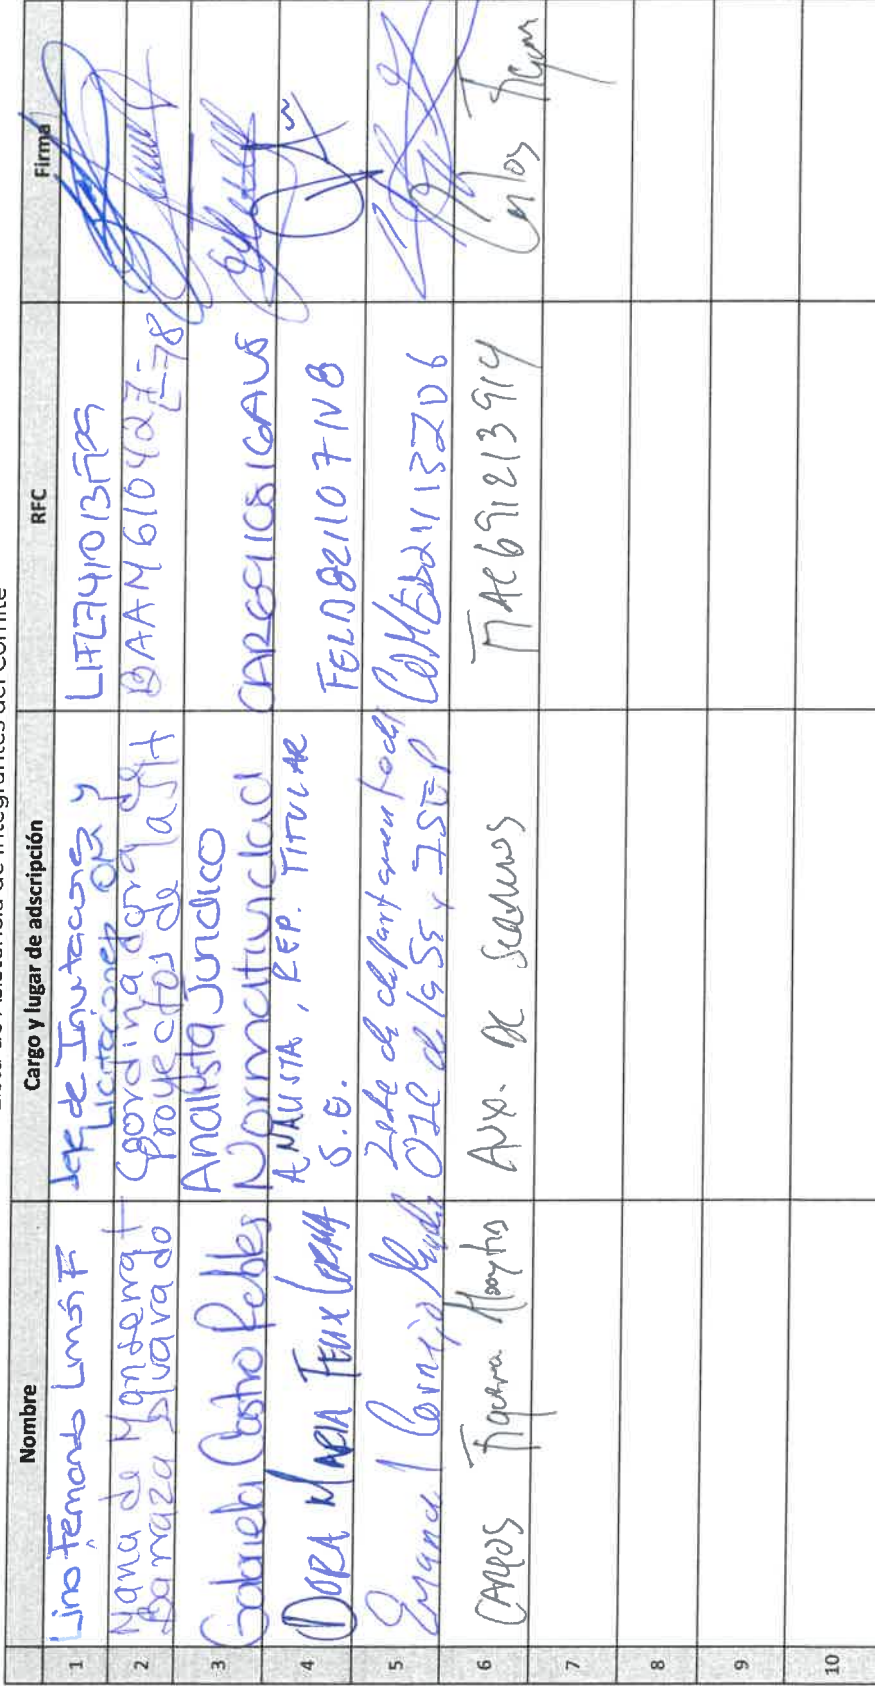 Lista de Asistencia de Integrantes del Comité
Nombre
Cargo y lugar de adscripción
RFC
Firma
1
Lino Fernando Limón F
Jefe de Invitaciones y
Licitaciones OM
2
Maria de Monserrat
Barraza Alvarado
Coordinadora de
Proyectos de la
BAAM610427
L78
3
Gabriela Castro Robles
Analista Juridico
Normatividad
4
DORA MARIA FELIX LERMA
ANALISTA, REP. TITULAR
S.E.
FELD821107IV8
5
Emanuel Cornejo
Jefe de departamento del
OIC de la SSE y ISEP
6
CARLOS Figueroa
Aux. DE
FIAC691213914
Carlos
7
8
9
10